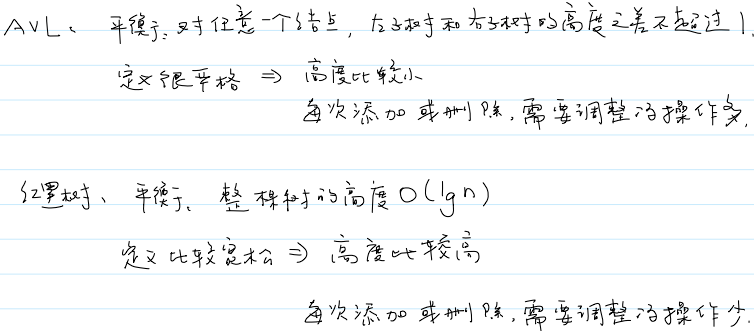 AVL: 平衡: 对任意一个结点, 左子树和右子树的高度之差不超过1.
定义很严格 ⇒ 高度比较小
每次添加或删除, 需要调整的操作多.
红黑树、平衡: 整棵树的高度O(lgn)
定义比较宽松 ⇒ 高度比较高
每次添加或删除, 需要调整的操作少.